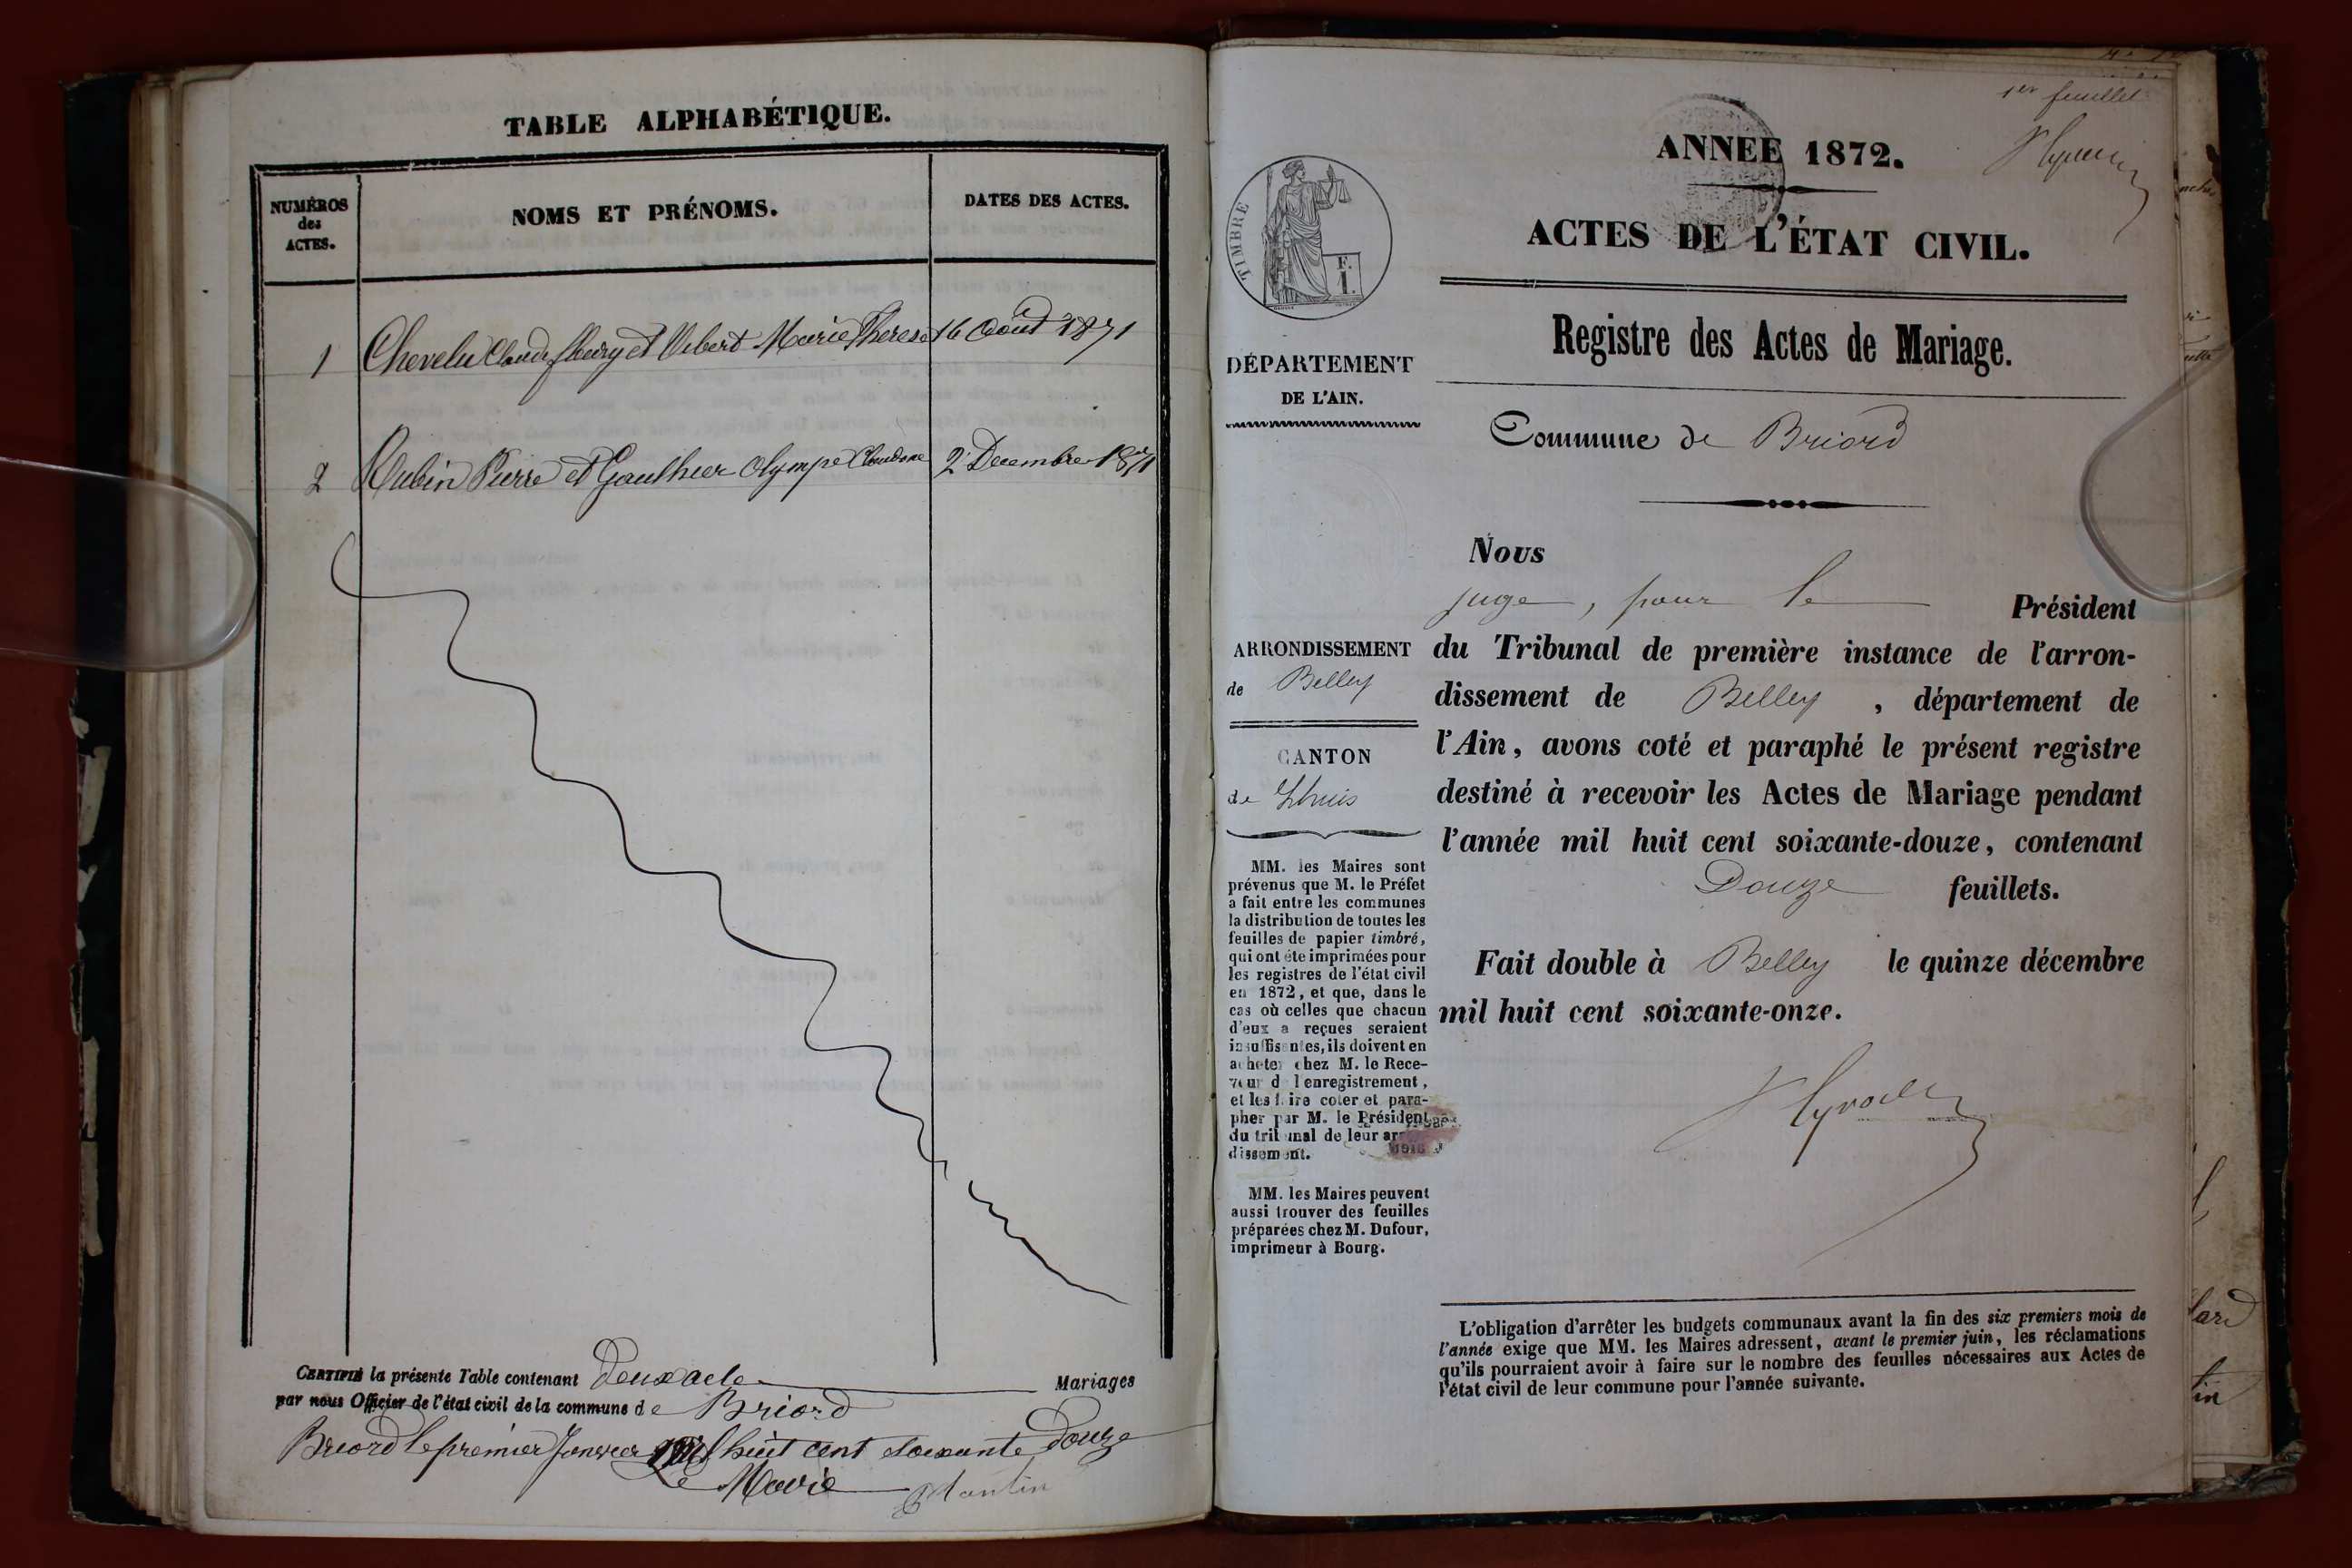 TABLE ALPHABÉTIQUE.
NUMÉROS
des
ACTES.
NOMS ET PRÉNOMS.
DATES DES ACTES.
1 Chevelu Claude fleury et Vebert Marie Therese 16 Août 1871
2 Rubin Pierre et Gauthier Olympe Claudone 2 Decembre 1871
CERTIFIÉ la présente Table contenant Deux acte Mariages
par nous Officier de l'état civil de la commune de Briord
Briord le premier Janvier mil huit cent soixante Douze
Le Maire
1er feuillet
ANNEE 1872.
ACTES DE L'ÉTAT CIVIL.
TIMBRE
F.
1.
Registre des Actes de Mariage.
DÉPARTEMENT
DE L'AIN.
Commune de Briord
Nous
juge, pour le Président
du Tribunal de première instance de l'arron-
dissement de Belley, département de
l'Ain, avons coté et paraphé le présent registre
destiné à recevoir les Actes de Mariage pendant
l'année mil huit cent soixante-douze, contenant
Douze feuillets.
Fait double à Belley le quinze décembre
mil huit cent soixante-onze.
ARRONDISSEMENT
de Belley
CANTON
de Lhuis
MM. les Maires sont
prévenus que M. le Préfet
a fait entre les communes
la distribution de toutes les
feuilles de papier timbré,
qui ont été imprimées pour
les registres de l'état civil
en 1872, et que, dans le
cas où celles que chacun
d'eux a reçues seraient
insuffisantes, ils doivent en
acheter chez M. le Rece-
veur de l'enregistrement,
et les faire coter et para-
pher par M. le Président
du tribunal de leur arr
dissement.
MM. les Maires peuvent
aussi trouver des feuilles
préparées chez M. Dufour,
imprimeur à Bourg.
L'obligation d'arrêter les budgets communaux avant la fin des six premiers mois de
l'année exige que MM. les Maires adressent, avant le premier juin, les réclamations
qu'ils pourraient avoir à faire sur le nombre des feuilles nécessaires aux Actes de
l'état civil de leur commune pour l'année suivante.